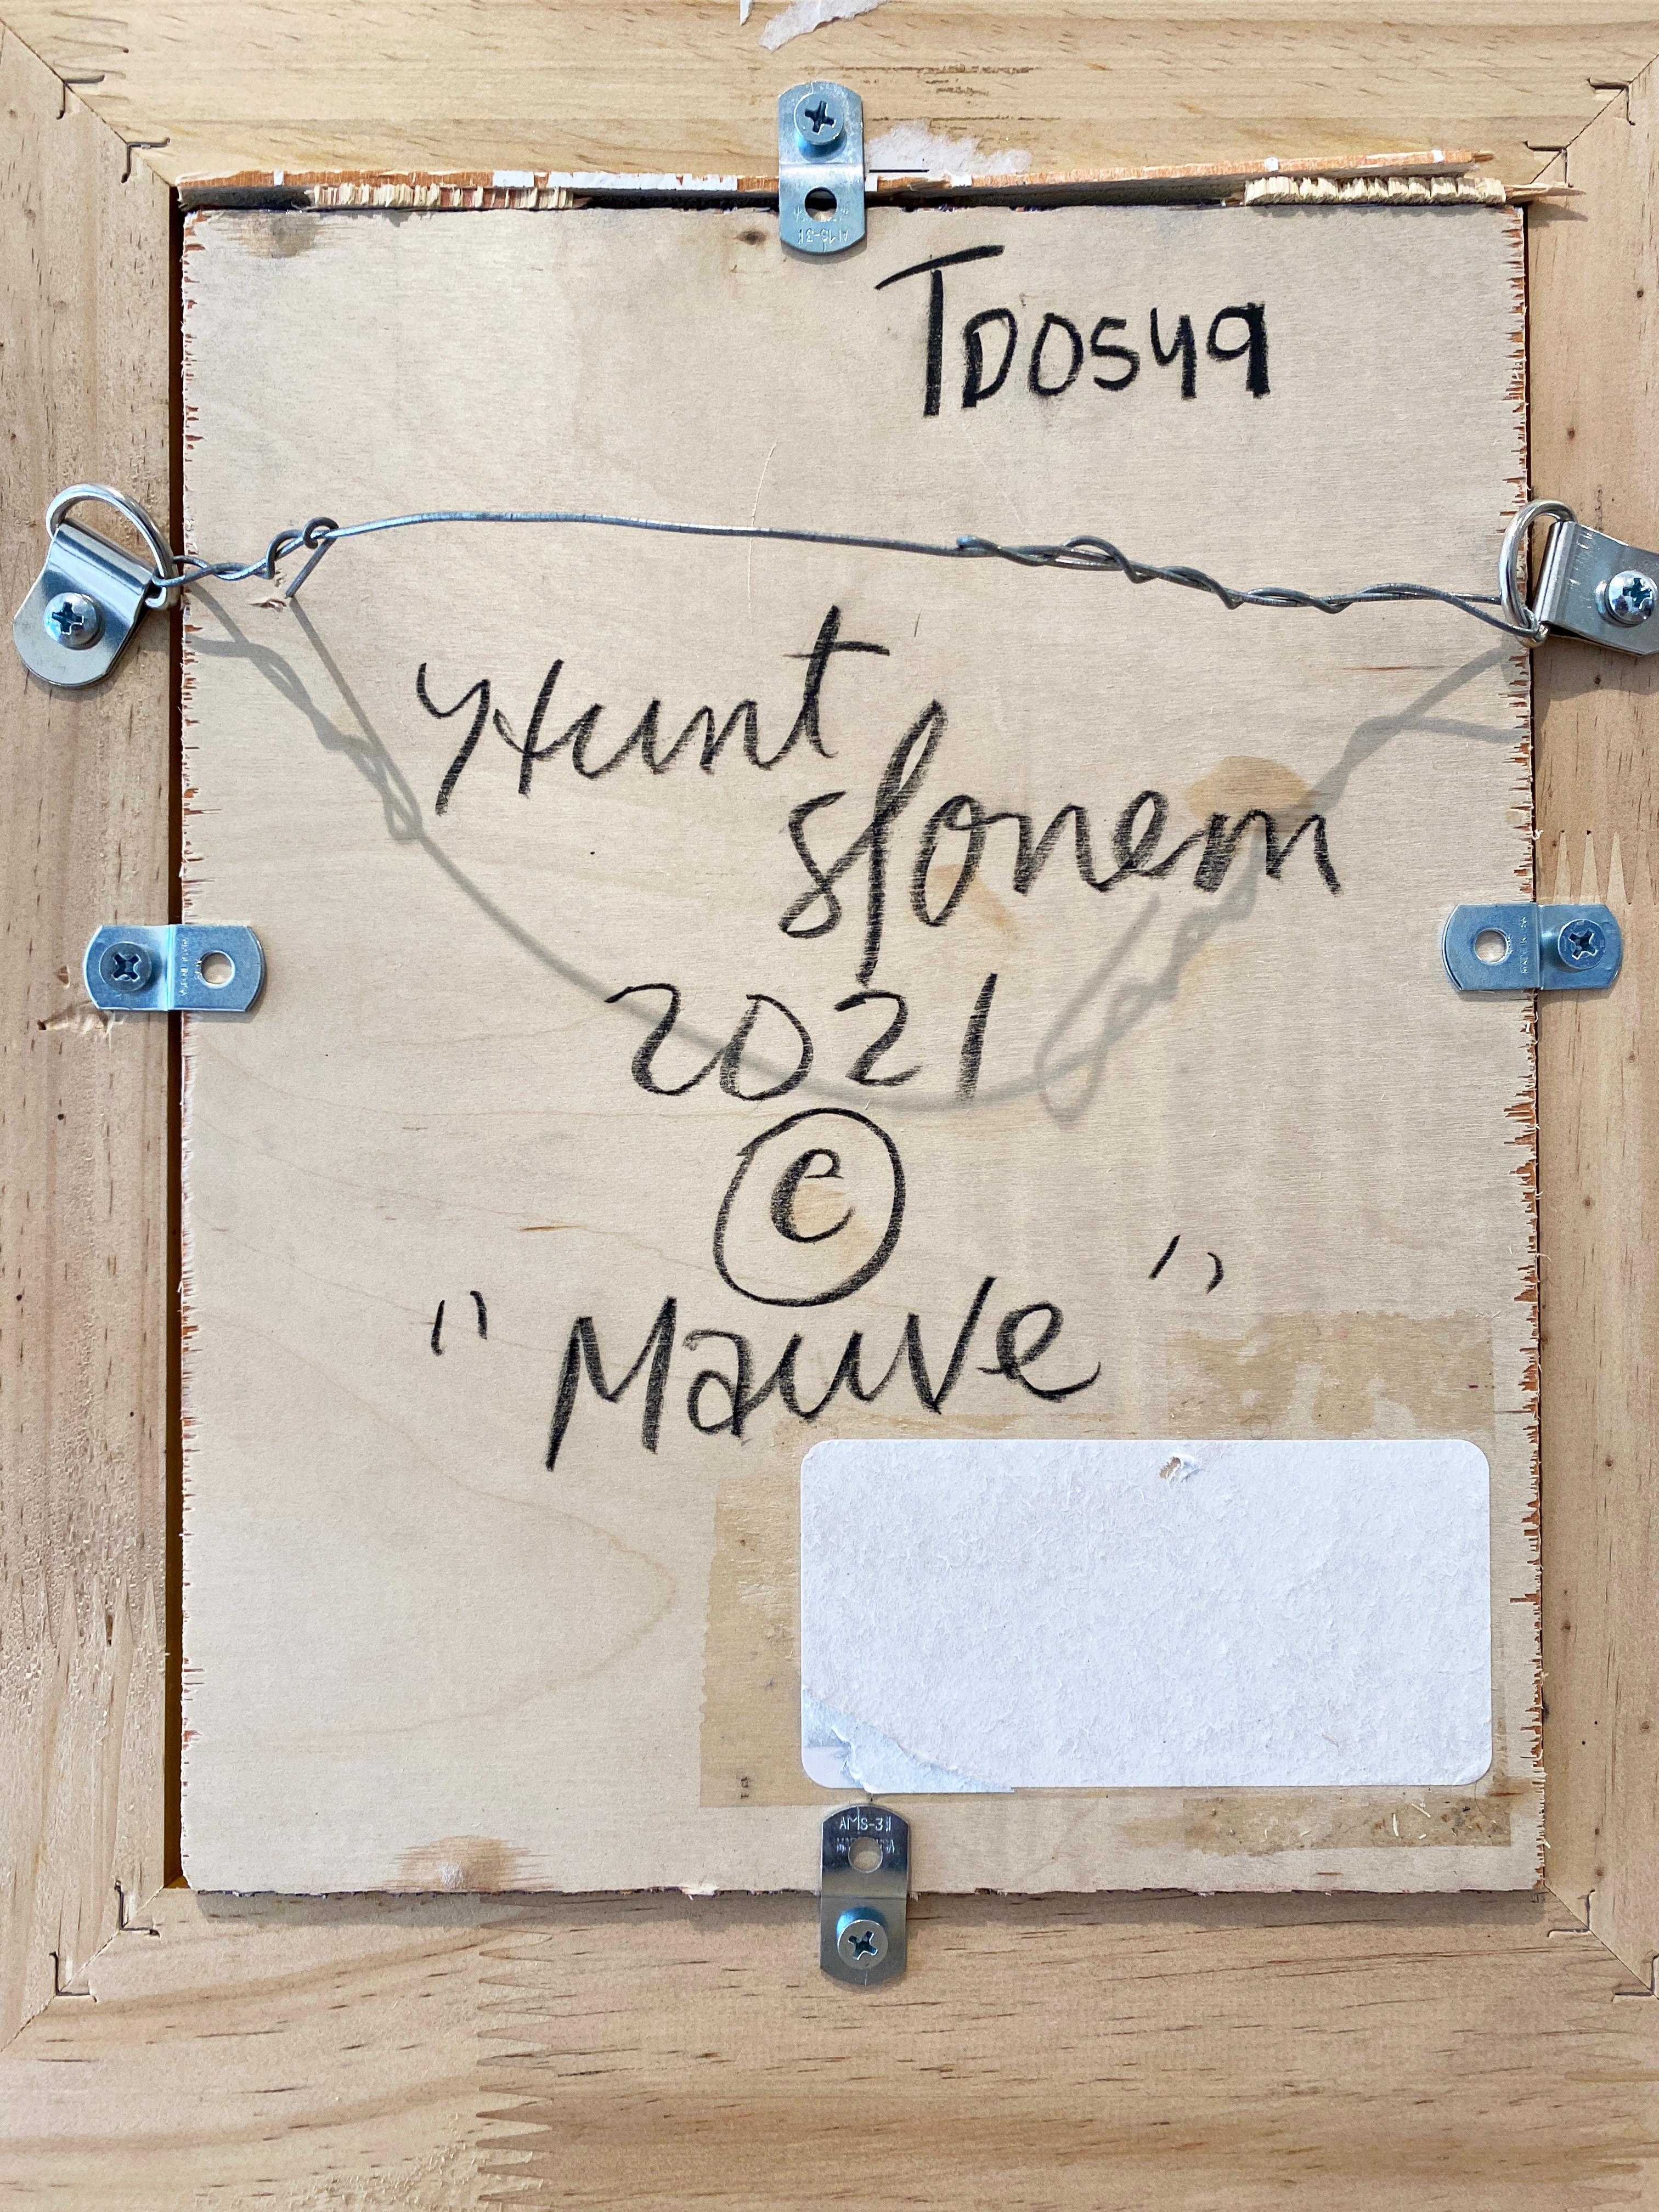 TD0549
AMS-3
Hunt
Slonem
2021
©
"Mauve"
AMS-3